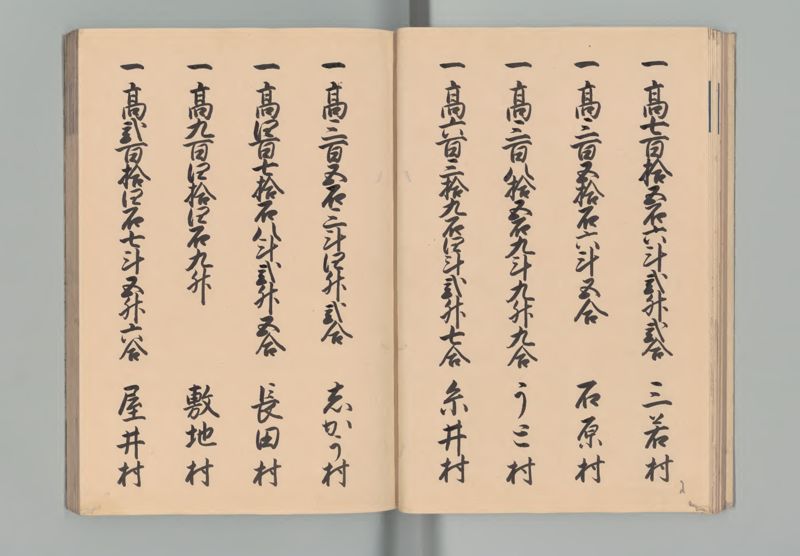 一高七百拾五石六斗弐升弐合 三若村
一高三百五拾石六斗五合 石原村
一高三百八拾五石九斗九升九合 うと村
一高六百三拾九石四斗弐升七合 糸井村
一高三百五石三斗四升弐合 志かう村
一高四百七拾石八斗弐升五合 長田村
一高九百四拾四石九升 敷地村
一高弐百拾四石七斗五升六合 屋井村